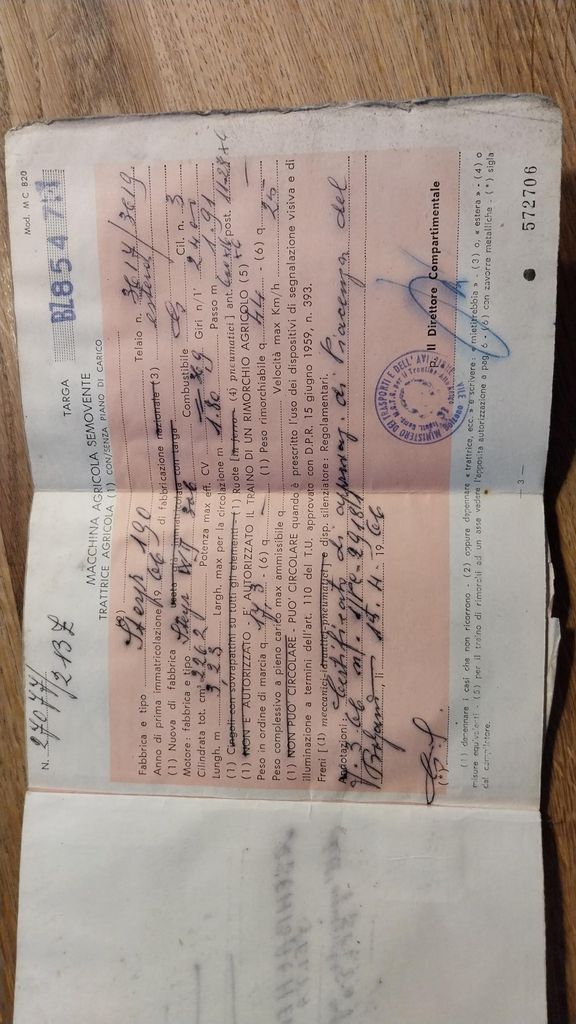 Mod. MC 820
N. 27077/213Z
TARGA BZ 854
MACCHINA AGRICOLA SEMOVENTE
TRATTRICE AGRICOLA (1) CON/SENZA PIANO DI CARICO
Fabbrica e tipo (2) Steyr 190 Telaio n. 3617/3619
Anno di prima immatricolazione 19 66 di fabbricazione nazionale (3) estera
(1) Nuova di fabbrica con targa
Motore: fabbrica e tipo Steyr WD 306 Combustibile G Cil. n. 3
Cilindrata tot. cm³ Potenza max eff. CV Giri n/1' 2400
Lungh. m 3,23 Largh. max per la circolazione m 1.80 Passo m 1.91
(1) Cingoli con sovrapattini su tutti gli elementi - (1) Ruote [in ferro - (4) pneumatici] ant. post. 11-28
(1) NON E' AUTORIZZATO - E' AUTORIZZATO IL TRAINO DI UN RIMORCHIO AGRICOLO (5)
Peso in ordine di marcia q. 17,3 - (6) q. — (1) Peso rimorchiabile q. 44 - (6) q. —
Peso complessivo a pieno carico max ammissibile q. — Velocità max Km/h 25
(1) NON PUO' CIRCOLARE - PUO' CIRCOLARE quando è prescritto l'uso dei dispositivi di segnalazione visiva e di
illuminazione a termini dell'art. 110 del T.U. approvato con D.P.R. 15 giugno 1959, n. 393.
Freni [(1) meccanici-idraulici-pneumatici] e disp. silenziatore: Regolamentari.
Annotazioni: Certificato di approvaz. di Piacenza del
Bolzano, li 14.4.1966
p. Il Direttore Compartimentale
MINISTERO DEI TRASPORTI E DELL' AVIAZIONE CIVILE
(*)
(1) depennare i casi che non ricorrono - (2) oppure depennare « trattrice, ecc. » e scrivere: « mietitrebbia » - (3) o, « estera » - (4) o
misure equivalenti - (5) per il traino di rimorchi ad un asse vedere l'apposita autorizzazione a pag. 6 - (6) con zavorre metalliche - (*) sigla
del compilatore.
— 3 —
572706